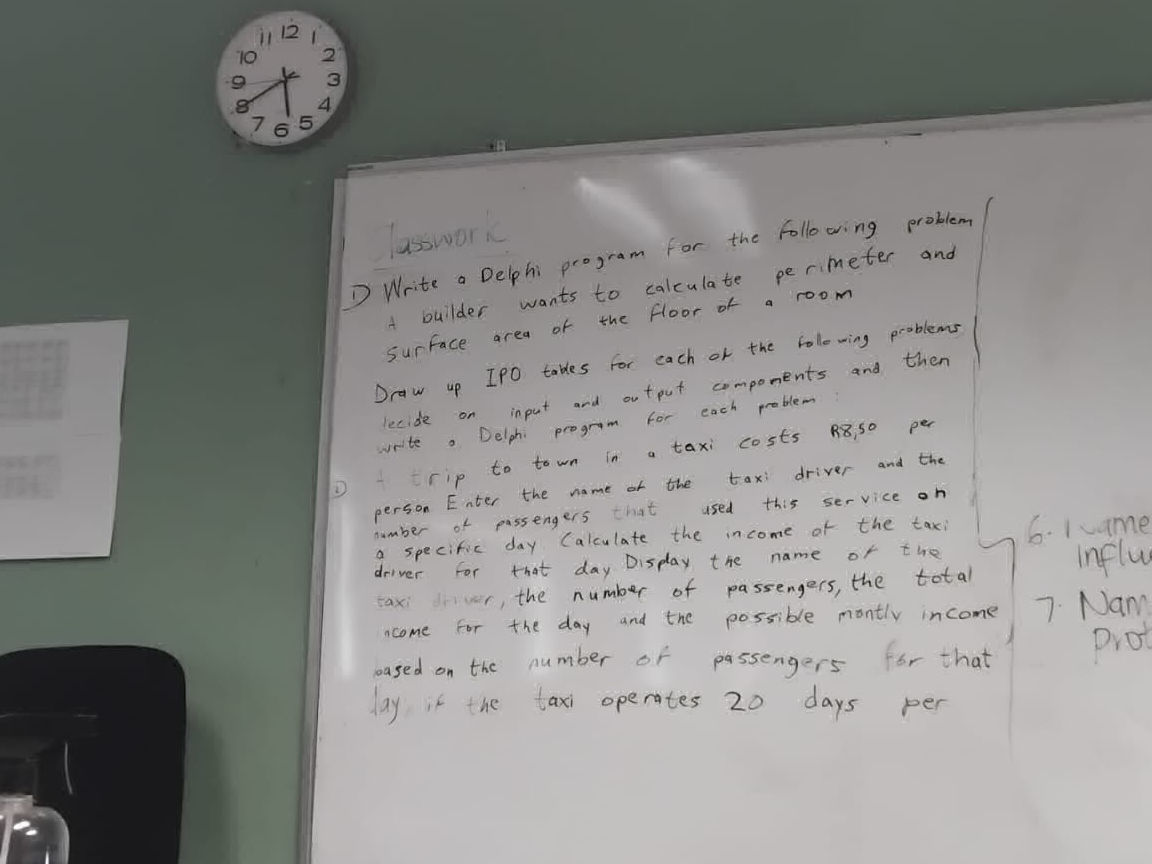 11 12 1
10 2
9 3
8 4
7 6 5
Classwork
1) Write a Delphi program for the following problem
A builder wants to calculate perimeter and
surface area of the floor of a room
Draw up IPO tables for each of the following problems
decide on input and output components and then
write a Delphi program for each problem :
A trip to town in a taxi costs R8,50 per
person Enter the name of the taxi driver and the
number of passengers that used this service on
a specific day. Calculate the income of the taxi
driver for that day Display the name of the
taxi driver, the number of passengers, the total
income for the day and the possible montly income
based on the number of passengers for that
day, if the taxi operates 20 days per
6. Name
influ
7. Nam
prot